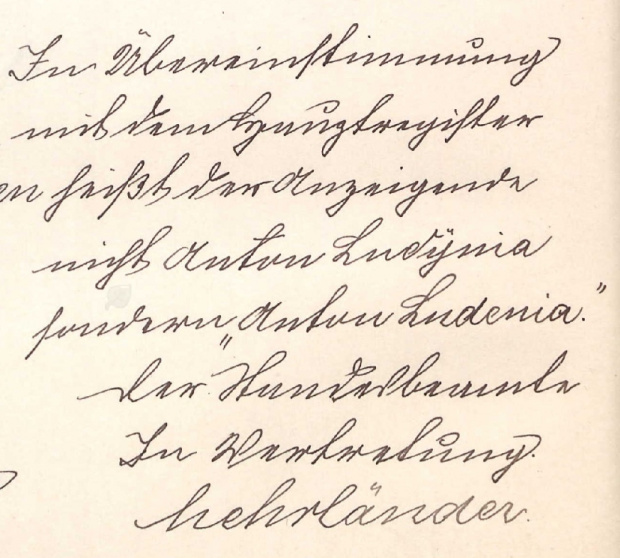 In Übereinstimmung
mit dem Hauptregister
en heißt der Anzeigende
nicht Anton Ludÿnia
sondern „Anton Ludenia.“
Der Standesbeamte
In Vertretung.
Mehrländer.